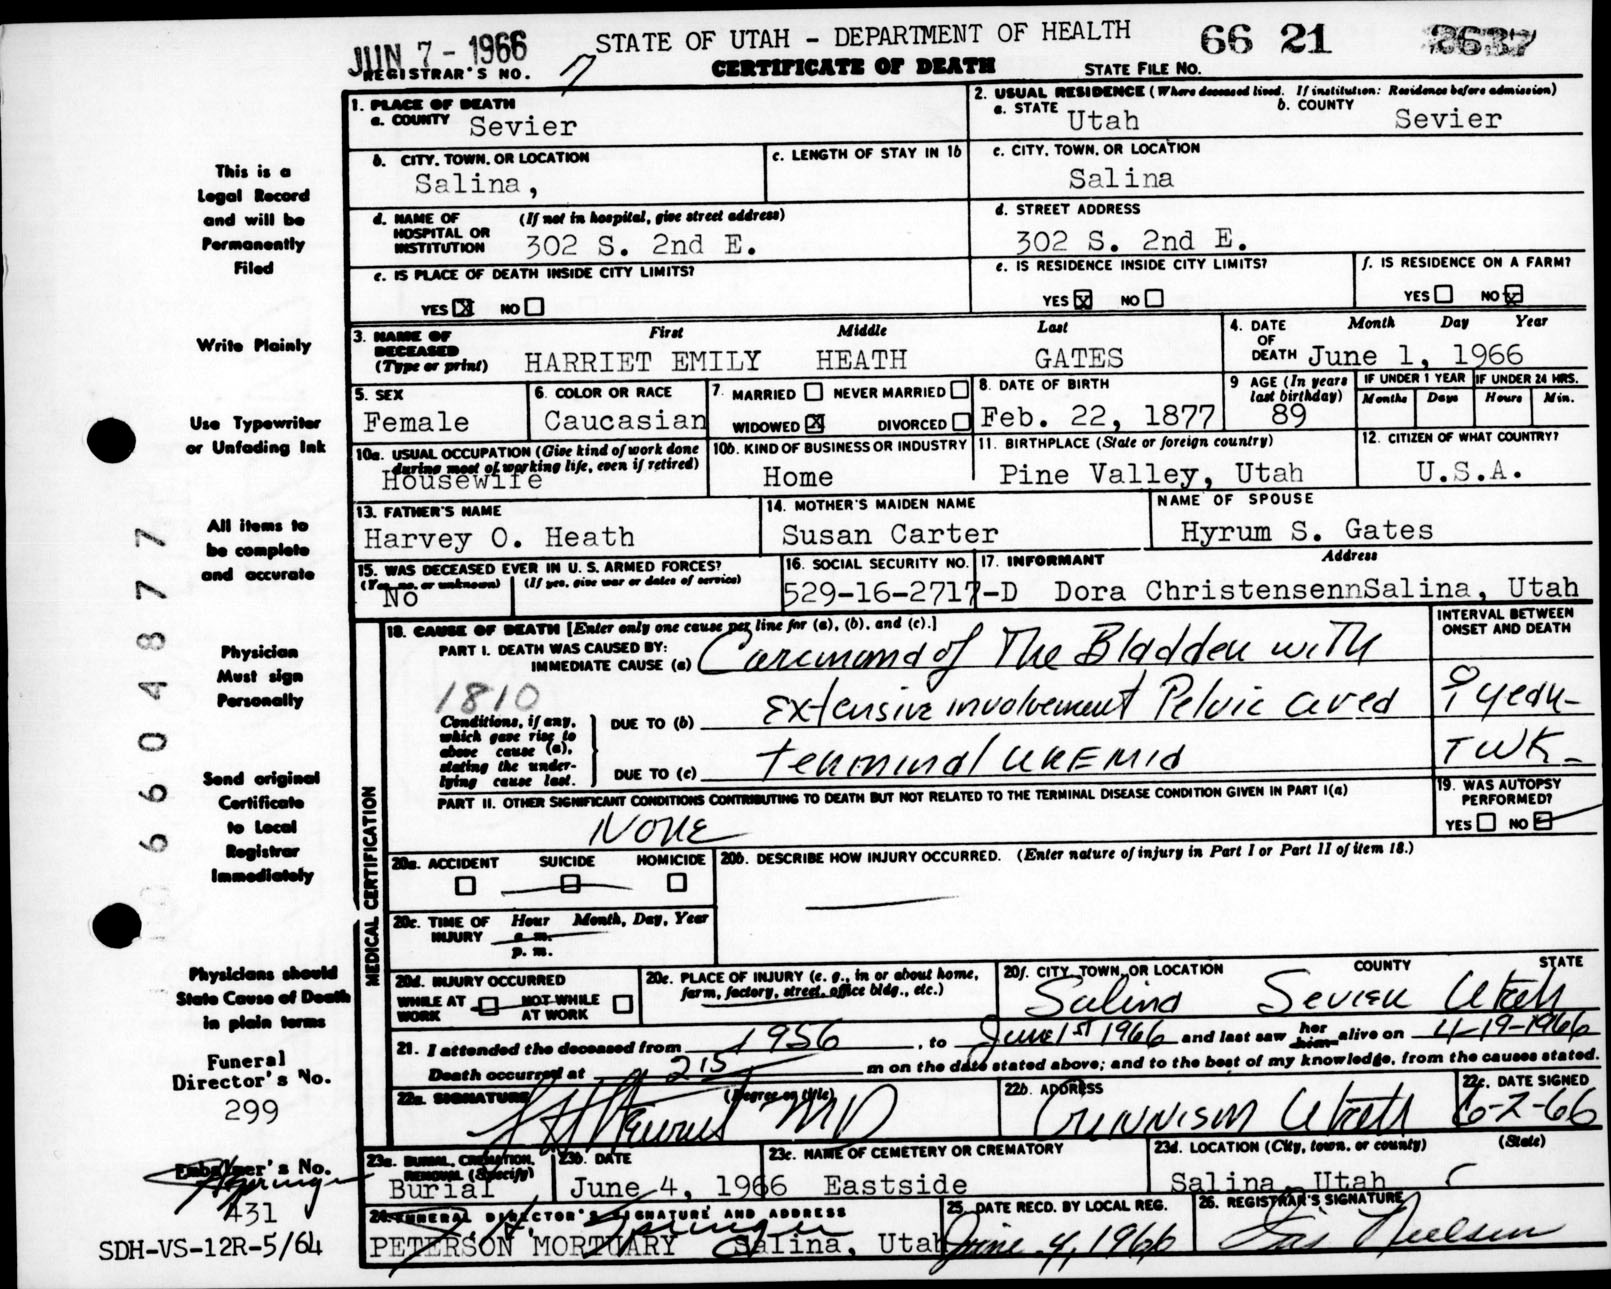 JUN 7 - 1966
STATE OF UTAH - DEPARTMENT OF HEALTH
66 21 2637
REGISTRAR'S NO. 7
CERTIFICATE OF DEATH
STATE FILE NO.
1. PLACE OF DEATH
a. COUNTY Sevier
2. USUAL RESIDENCE (Where deceased lived. If institution: Residence before admission)
a. STATE Utah b. COUNTY Sevier
b. CITY, TOWN, OR LOCATION Salina,
c. LENGTH OF STAY IN 1b
c. CITY, TOWN, OR LOCATION Salina
d. NAME OF HOSPITAL OR INSTITUTION (If not in hospital, give street address) 302 S. 2nd E.
d. STREET ADDRESS 302 S. 2nd E.
e. IS PLACE OF DEATH INSIDE CITY LIMITS?
YES X NO
e. IS RESIDENCE INSIDE CITY LIMITS?
YES X NO
f. IS RESIDENCE ON A FARM?
YES NO X
3. NAME OF DECEASED (Type or print) First Middle Last
HARRIET EMILY HEATH GATES
4. DATE OF DEATH Month Day Year
June 1, 1966
5. SEX Female
6. COLOR OR RACE Caucasian
7. MARRIED NEVER MARRIED
WIDOWED X DIVORCED
8. DATE OF BIRTH Feb. 22, 1877
9 AGE (In years last birthday) 89
IF UNDER 1 YEAR Months Days
IF UNDER 24 HRS. Hours Min.
10a. USUAL OCCUPATION (Give kind of work done during most of working life, even if retired)
Housewife
10b. KIND OF BUSINESS OR INDUSTRY
Home
11. BIRTHPLACE (State or foreign country)
Pine Valley, Utah
12. CITIZEN OF WHAT COUNTRY?
U.S.A.
13. FATHER'S NAME
Harvey O. Heath
14. MOTHER'S MAIDEN NAME
Susan Carter
NAME OF SPOUSE
Hyrum S. Gates
15. WAS DECEASED EVER IN U. S. ARMED FORCES?
(Yes, no, or unknown) (If yes, give war or dates of service)
No
16. SOCIAL SECURITY NO.
529-16-2717-D
17. INFORMANT Address
Dora ChristensennSalina, Utah
MEDICAL CERTIFICATION
18. CAUSE OF DEATH [Enter only one cause per line for (a), (b), and (c).]
INTERVAL BETWEEN ONSET AND DEATH
PART I. DEATH WAS CAUSED BY:
IMMEDIATE CAUSE (a) Carcinoma of The Bladder with
1810
Conditions, if any, which gave rise to above cause (a), stating the underlying cause last.
DUE TO (b) extensive involvement Pelvic area
DUE TO (c) terminal uremia
1 WK
PART II. OTHER SIGNIFICANT CONDITIONS CONTRIBUTING TO DEATH BUT NOT RELATED TO THE TERMINAL DISEASE CONDITION GIVEN IN PART I(a)
None
19. WAS AUTOPSY PERFORMED?
YES NO
20a. ACCIDENT SUICIDE HOMICIDE
20b. DESCRIBE HOW INJURY OCCURRED. (Enter nature of injury in Part I or Part II of item 18.)
20c. TIME OF INJURY Hour Month, Day, Year
a. m.
p. m.
20d. INJURY OCCURRED
WHILE AT WORK NOT WHILE AT WORK
20e. PLACE OF INJURY (e. g., in or about home, farm, factory, street, office bldg., etc.)
20f. CITY, TOWN, OR LOCATION COUNTY STATE
Salina Sevier Utah
21. I attended the deceased from 1956, to June 1st 1966 and last saw her him alive on 4-19-1966
Death occurred at 215 m on the date stated above; and to the best of my knowledge, from the causes stated.
22a. SIGNATURE (Degree or title)
MD
22b. ADDRESS
Gunnison Utah
22c. DATE SIGNED
6-2-66
23a. BURIAL, CREMATION, REMOVAL (Specify)
Burial
23b. DATE
June 4, 1966
23c. NAME OF CEMETERY OR CREMATORY
Eastside
23d. LOCATION (City, town, or county) (State)
Salina, Utah
24. FUNERAL DIRECTOR'S SIGNATURE AND ADDRESS
PETERSON MORTUARY Salina, Utah
25. DATE RECD. BY LOCAL REG.
June 4, 1966
26. REGISTRAR'S SIGNATURE
Nielsen
This is a
Legal Record
and will be
Permanently
Filed
Write Plainly
Use Typewriter
or Unfading Ink
All items to
be complete
and accurate
Physician
Must sign
Personally
Send original
Certificate
to Local
Registrar
Immediately
Physicians should
State Cause of Death
in plain terms
Funeral
Director's No.
299
Embalmer's No.
431
SDH-VS-12R-5/64
06604877